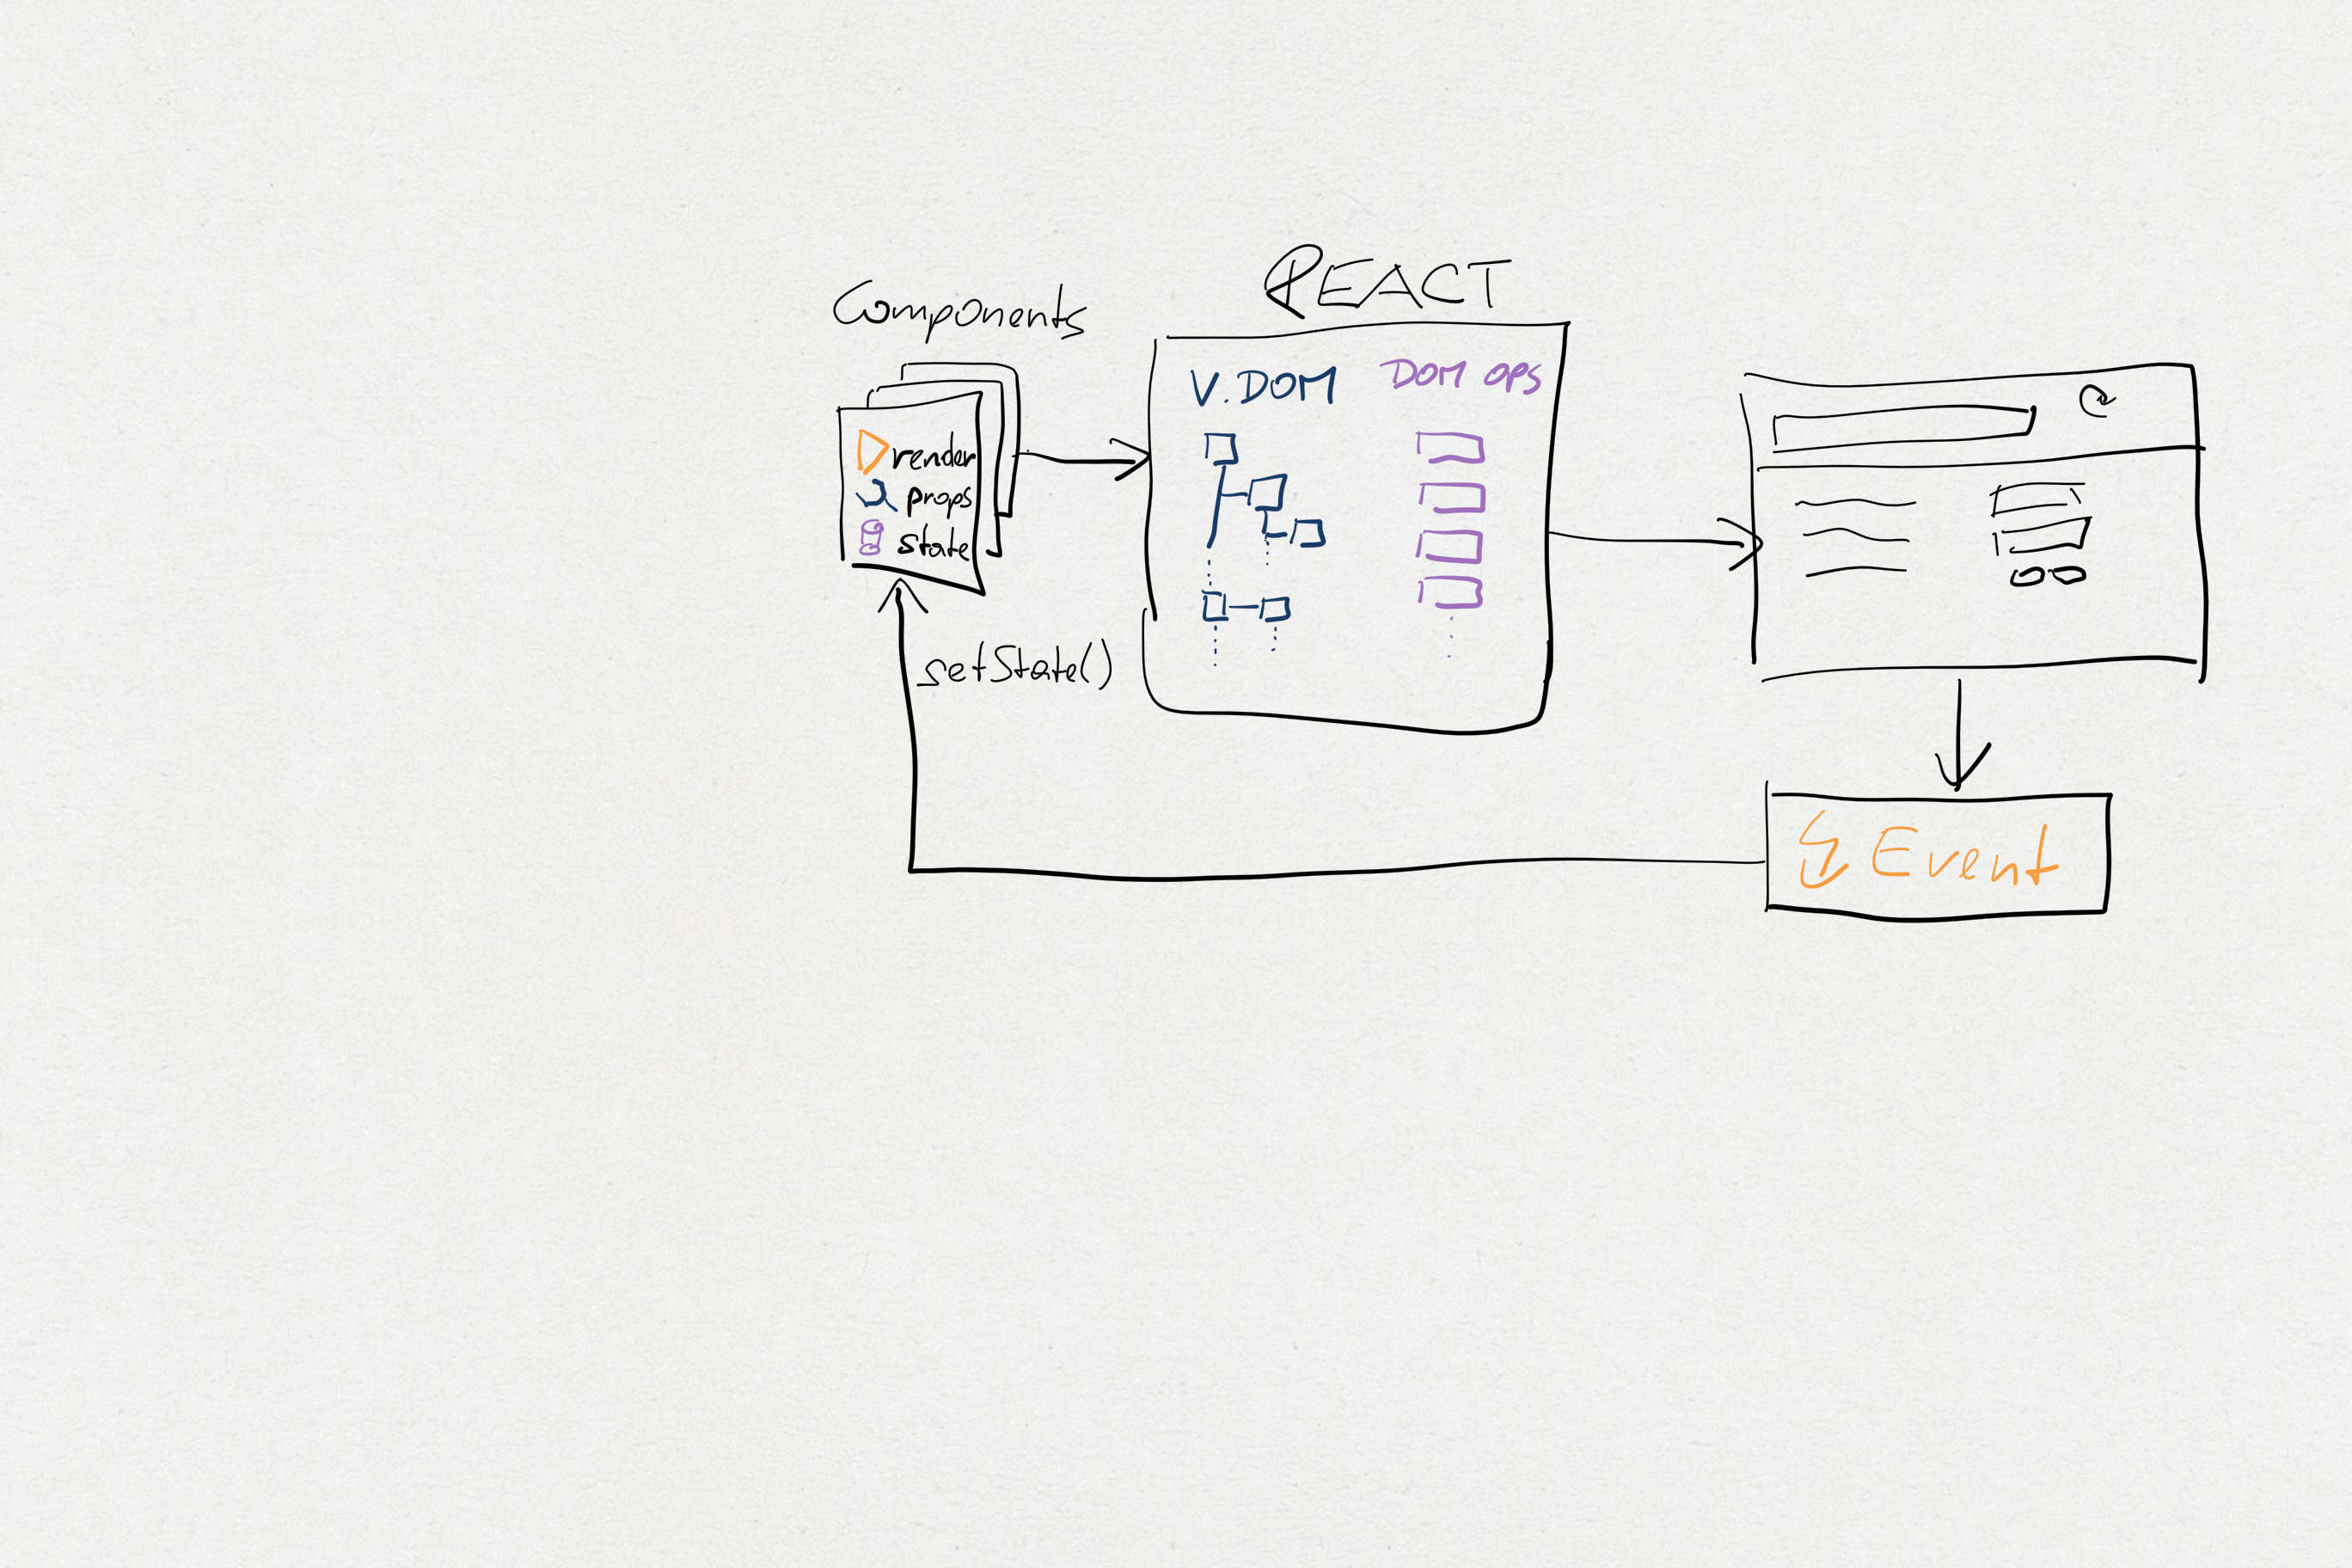 Components
REACT
render
props
state
V.DOM
DOM OPS
setState()
Event